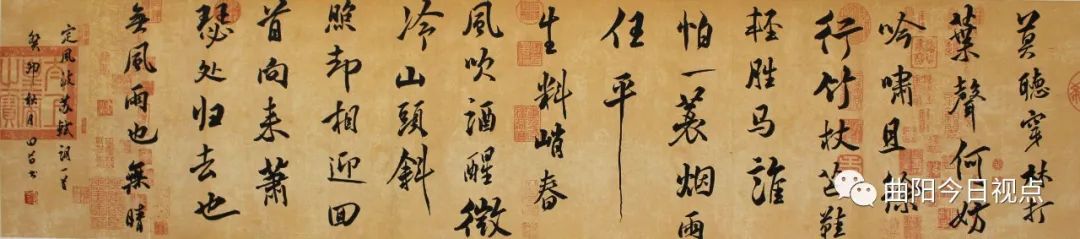 莫聽穿林打
葉聲何妨
吟嘯且徐
行竹杖芒鞋
轻胜马誰
怕一蓑烟雨
任平
生料峭春
風吹酒醒微
冷山頭斜
照却相迎回
首向来萧
瑟处归去也
無風雨也無晴
定風波苏轼词一首
癸卯秋月田
曲阳今日视点